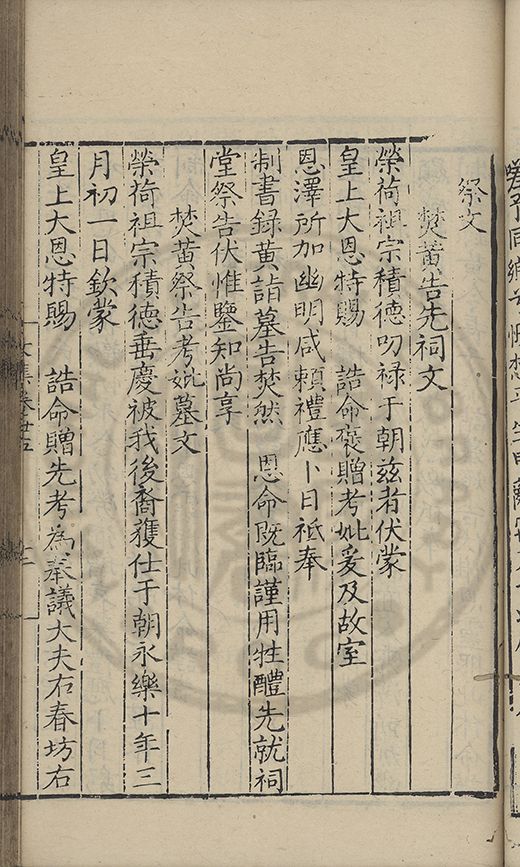 祭文
焚黃告先祠文
榮荷祖宗積德叨祿于朝茲者伏蒙
皇上大恩特賜　誥命褒贈考妣爰及故室
恩澤所加幽明咸賴禮應卜日祗奉
制書錄黃詣墓告焚然　恩命既臨謹用牲醴先就祠
堂祭告伏惟鑒知尚享
焚黃祭告考妣墓文
榮荷祖宗積德垂慶被我後裔獲仕于朝永樂十年三
月初一日欽蒙
皇上大恩特賜　誥命贈先考為奉議大夫右春坊右
文集卷廿五